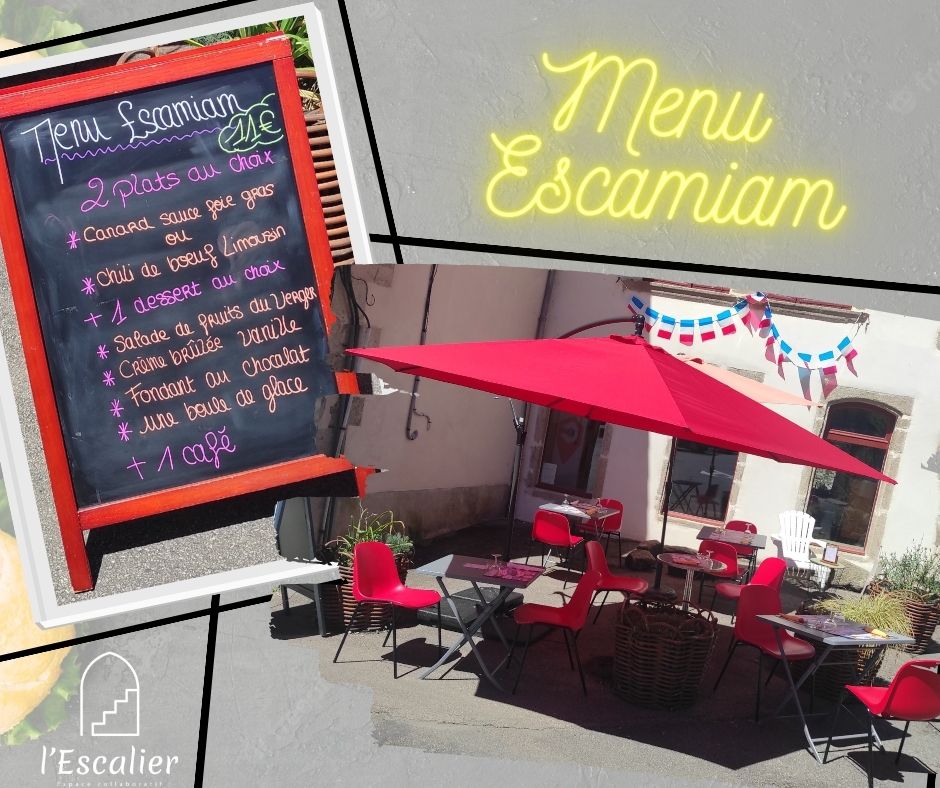 Menu Escamiam
11€
2 plats au choix
* Canard sauce foie gras
ou
* Chili de boeuf Limousin
+ 1 dessert au choix
* Salade de fruits du Verger
* Crème brûlée vanille
* Fondant au chocolat
* une boule de glace
+ 1 café
Menu
Escamiam
l'Escalier
Espace collaboratif